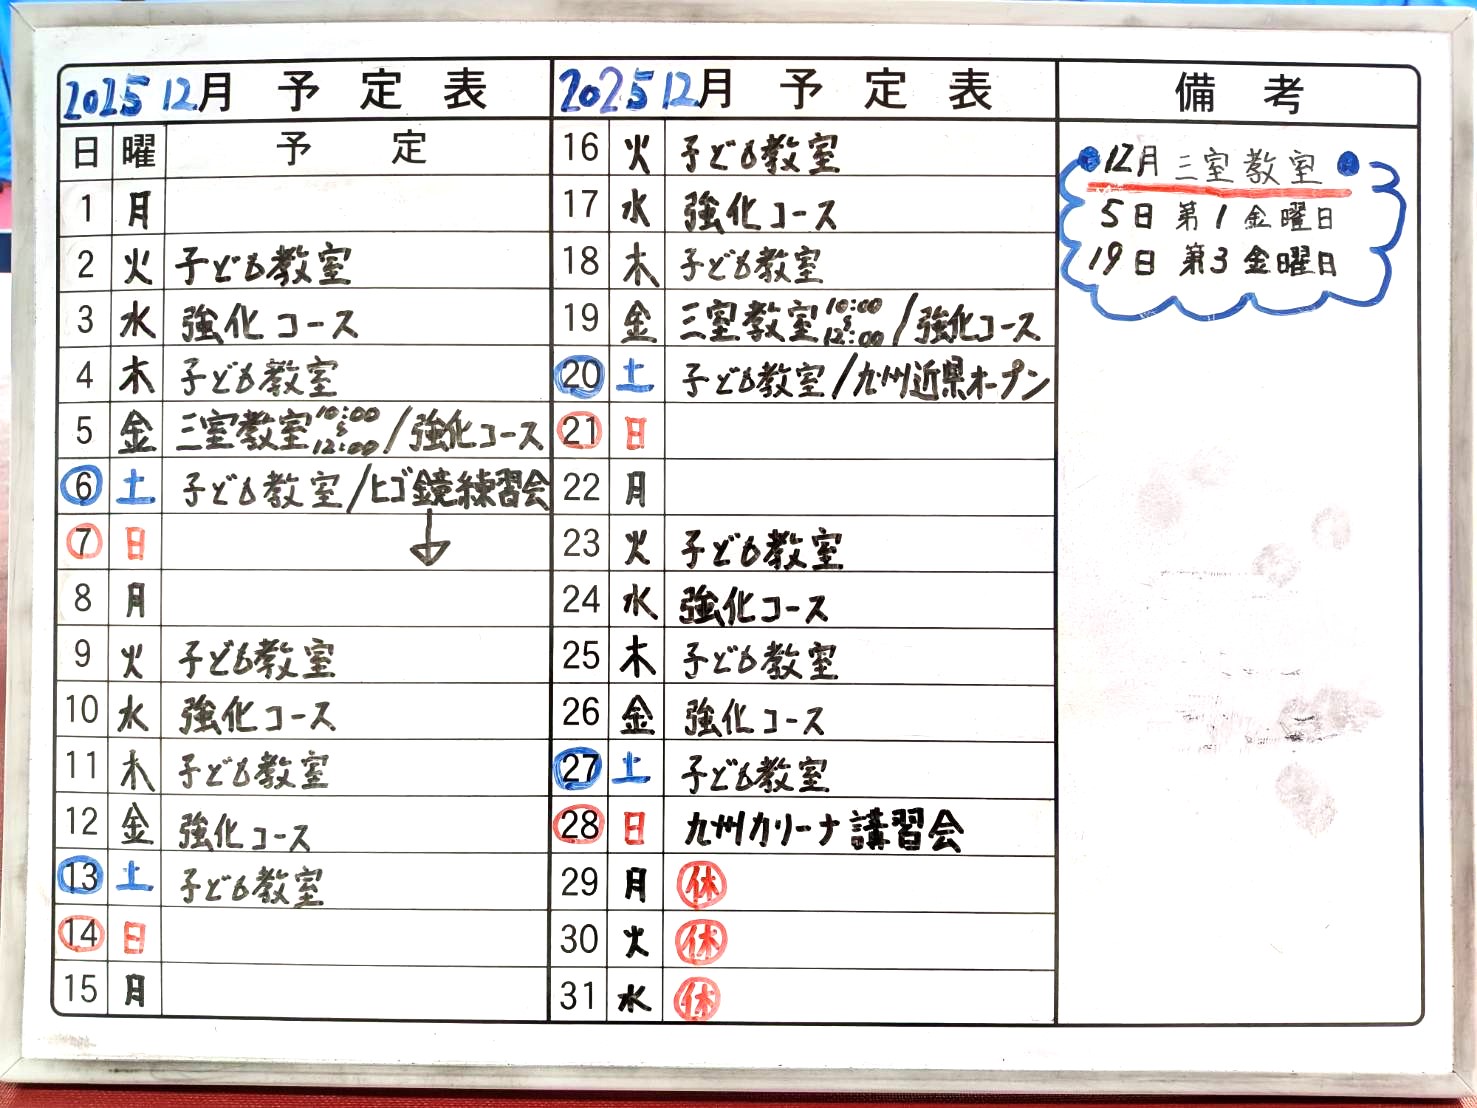 2025 12月 予定表
日 曜 予定
1 月
2 火 子ども教室
3 水 強化コース
4 木 子ども教室
5 金 三室教室10:00〜12:00/強化コース
6 土 子ども教室/ヒゴ鏡練習会
7 日 ↓
8 月
9 火 子ども教室
10 水 強化コース
11 木 子ども教室
12 金 強化コース
13 土 子ども教室
14 日
15 月
2025 12月 予定表
16 火 子ども教室
17 水 強化コース
18 木 子ども教室
19 金 三室教室10:00〜12:00/強化コース
20 土 子ども教室/九州近県オープン
21 日
22 月
23 火 子ども教室
24 水 強化コース
25 木 子ども教室
26 金 強化コース
27 土 子ども教室
28 日 九州カリーナ講習会
29 月 休
30 火 休
31 水 休
備考
12月三室教室
5日 第1金曜日
19日 第3金曜日